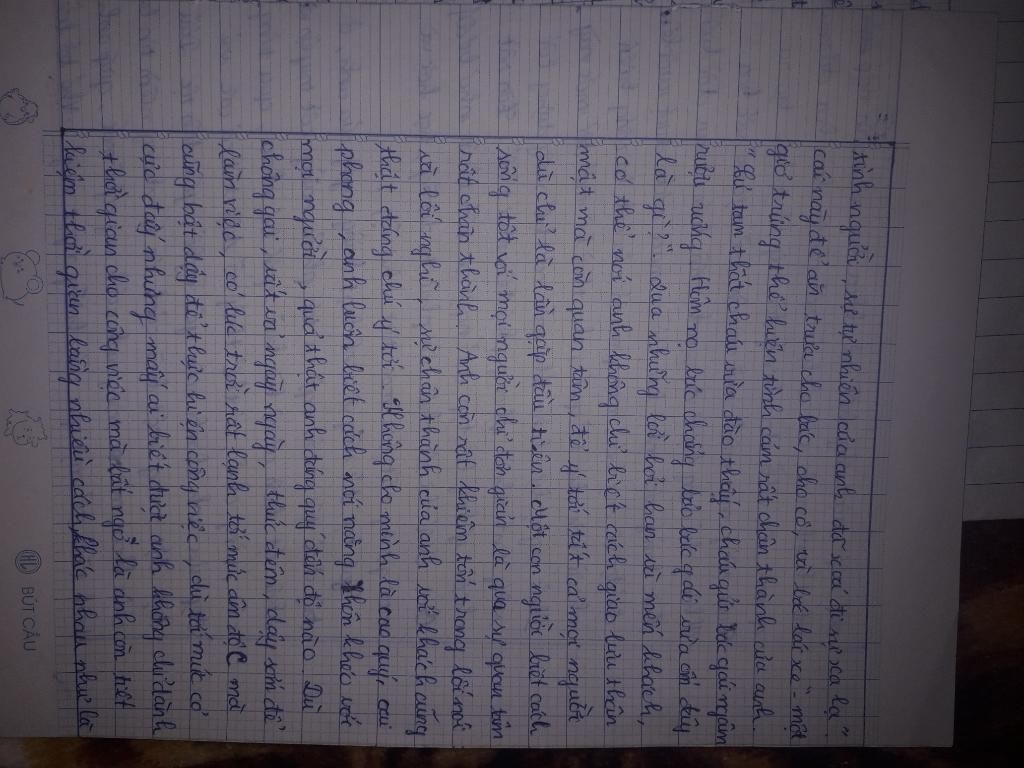 tình người, sự tự nhiên của anh đã xoá đi sự xa lạ "
cái này để ăn trưa cho bác, cho cô, và bác lái xe" - một
giỏ trứng thể hiện tình cảm rất chân thành của anh.
"Cái tam thất cháu vừa đào thấy, cháu gửi bác gái ngâm
rượu uống. Hôm nọ bác chẳng bảo bác gái vừa ốm dậy
là gì?". Qua những lời hỏi han và mến khách,
có thể nói anh không chỉ biết cách giao lưu thân
mật mà còn quan tâm, để ý tới tất cả mọi người
dù chỉ là lần gặp đầu tiên. Một con người biết cách
sống tốt với mọi người chỉ đơn giản là qua sự quan tâm
rất chân thành. Anh còn rất khiêm tốn trong lối nói
và lối nghĩ, sự chân thành của anh với khách cũng
thật đáng chú ý tới. Không cho mình là cao quý, cai
phong, anh luôn biết cách nói năng khôn khéo với
mọi người, quả thật anh đáng quý đến độ nào. Dù
chông gai, vất vả ngày ngày, thức đêm, dậy sớm để
làm việc, có lúc trời rét lạnh tới mức âm độ C mà
cũng bật dậy để thực hiện công việc, dù tới mức cơ
cực đấy nhưng mấy ai biết được anh không chỉ dành
thời gian cho công việc mà bất ngờ là anh còn tiết
kiệm thời gian bằng nhiều cách khác nhau như là
BÚT CÂU